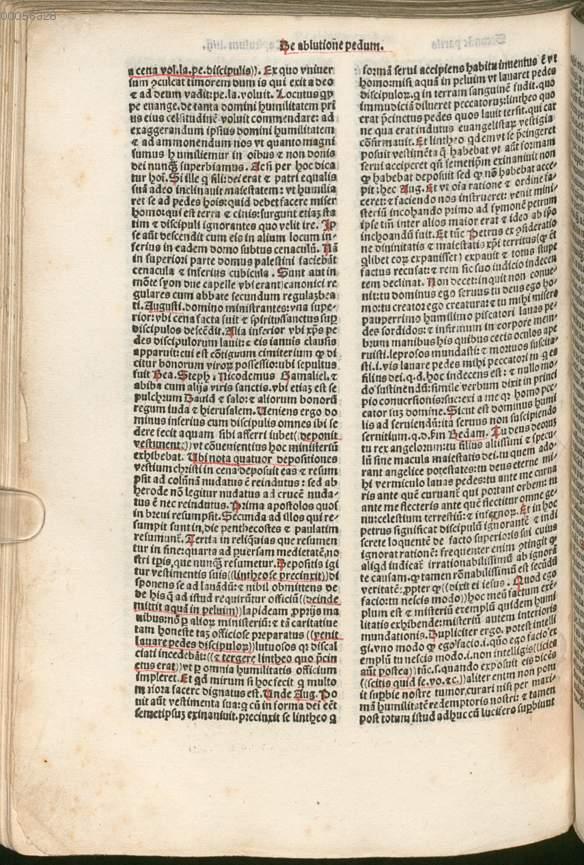 00056928
De ablutione pedum.
a cena vol. la. pe. discipulis)). Ex quo vniuer
sum ꝯculcat timorem dum is qui exit a deo
⁊ ad deum vadit: pe. la. voluit. Locutus
euange. de tanta domini humilitatem pri
us eius celsitudinē voluit commendare: ad
exaggerandum ipsius domini humilitatem
⁊ ad ammonendum nos vt quanto magni
sumus humiliemur in oībus ⁊ non donis
dei nunq̄ superbiamus. hoc dica
tur hoī. Si ille q̄ fili⁹ dei erat ⁊ patri equalis
sua adeo inclinauit maiestatem: vt humilia
ret se ad pedes hoīs: quid debet facere miser
homo: qui est terra ⁊ cinis: surgunt etiā sta
tim ⁊ discipuli ignorantes quo velit ire. Ip
se aūt descendit cum eis in alium locum in
ferius in eadem domo subtus cenaculū. Nā
in superiori parte domus palestini faciebāt
cenacula ⁊ inferius cubicula. Sunt aut in
mōte syon due capelle vbi erant canonici re
gulares cum abbate secundum regulā bea
ti. Augusti. domino ministrantes: vna supe
rior: vbi cena facta fuit ⁊ spiritussanctus sup
discipulos descēdit. Alia inferior vbi xp̄s pe
des discipulorum lauit: ⁊ eis ianuis clausis
apparuit: cui est cōtiguum cimiterium di
citur bonorum virorum possessio: vbi sepultus
fuit Bea. Steph. Nicodemus Gamaliel. ⁊
abiba cum alijs viris sanctis. vbi etiā est se
pulchrum Dauid ⁊ salo: ⁊ aliorum bonorū
regum iuda ⁊ hierusalem. Ueniens ergo do
minus inferius cum discipulis omnes ibi se
dere fecit aquam sibi afferri iubet (deponit
vestiment.)) vt cōuenientius hoc ministeriū
exhibebat. Ubi nota quatuor depositiones
vestium christi in cena deposuit eas ⁊ resum
psit ad colūnā nudatus ē reindutus: sed ab
herode nō legitur nudatus ad crucē nuda-
tus ē nec reindutus. Prima apostolos quos
in breui resumpsit. Secunda ad illos qui re-
sumpti sunt in die penthecostes ⁊ paulatim
resumunt̄. Tertia in reliquias que resumen
tur in fine: quarta ad pueram medietatē no
stri tꝑis, que nunq̄ resumetur. Depositis igi
tur vestimentis suis ((lintheo se precinxit)) di
sponens se ad lanādū: ⁊ nibil obmittens de
de his ad istud requiratur officiū ((deinde
mittit aquā in peluim)) lapideam proprijs ma
nibus: non alior ministeriū: ⁊ tā caritatiue
tam honeste tam officiose preparatus ((venit
lauare pedes discipulor)) lutuosos discal
ciati incedebāt: (⁊ tergere lintheo quo p̄cin
ctus erat)) vt omnia humilitatis officium
impleret. Et mirum si hoc fecit q̄ multo
maiora facere dignatus est. Unde Aug. Po
nit aūt vestimenta sua: cū in forma dei eēt
semetipsum exinaniuit. precinxit se lintheo
formā serui accipiens habitu inuentus ē vt
homo: misit aquā in peluim vt lauaret pedes
discipulor. q̄ in terram sanguinē fudit. quo
immundiciā dilueret peccatorum: lintheo quo
erat p̄cinctus pedes quos lauit tersit. qui car
ne qua erat indutus euangelistarum vestigia
cōfirmauit. Et lintheo quidem vt se p̄cingeret
posuit vestimēta q̄ habebat vt aūt formam
serui acciperet semetipsum exinaniuit non
q̄ habebat deposuit sed q̄ nō habebat acce
pit: hec Aug. Et vt oīa ratione ⁊ ordine fa-
ceret: ⁊ faciendo nos instrueret: venit mini-
steriū incohando primo ad symonē petrum
ipse inter alios maior erat ⁊ ideo ab ipo
inchoandū fuit. Et tūc Petrus ex ꝯsideratio
ne diuinitatis ⁊ maiestatis xp̄i territus
expauit ⁊ totus stupe
factus recusat: ⁊ rem sic suo iudicio indecen
tem declinat. Non decet: inquit non conue-
nit: tu dominus ego seruus tu deus ego ho-
mo: tu creator ego creatura: ⁊ tu mihi misero
pauperrimo humillimo piscatori lanas pe-
des sordidos: ⁊ infirmum in corpore mem-
brum manibus his quibus cecis oculos ape
ruisti. leprosos mundasti: ⁊ mortuos suscita-
sti. vis lauare pedes mihi peccatori
filius dei. q. d. hoc indecens est: ⁊ nullo mo-
do sustinendū. simile verbum dixit in princi
pio conuersionis sue: exi a me homo pec-
cator sum domine. Sicut est dominus humi
lis ad seruiendū: ita seruus non suscipiendo
seruitium. q. d. Bedam. Tu deus
tu rex angelorum: tu filius altissimi ⁊ specu-
lū sine macula maiestatis dei. tu quem ado
rant angelice potestates: tu deus eterne mi-
hi vermiculo lanas pedes: tu ante me curua
ris ante quē curuant̄ qui portant orbem: tu
ante me flecteris ante quē flectitur omne ge-
nu: celestium terrestriū: ⁊ infernorum. Et in hoc
petrus significat discipulū ignorantē ⁊ indi
screte loquentē de facto superioris sui cuius
ignorat rationē: frequenter enim ꝯtingit
aliqđ iudicat irrationabilissimū ab ignora
te causam. tamen rōnabilissimū est secundū
veritatē: propter (dixit ei iesus. Quod ego
facio: tu nescis modo)) hoc meū factum exem
plum est ⁊ misteriū exemplū quidem humi
litatis exhibende: misteriū autem interioris
mundationis. Dupliciter ergo. potest intelli
gi. vno modo facio. i. quo ego facio ex
emplū tu nescis modo. i. non intelligis ((scies
autē postea)) tūc. s. quando exposuit eis dicēs
((scitis quid fe. vo. ⁊ c.)) aliter enim non potu
it supbie nostre tumor, curari nisi per maxi-
mā humilitatē redemptoris nostri: ⁊ tamen
post totum istud adhuc cū lucifero supbiunt